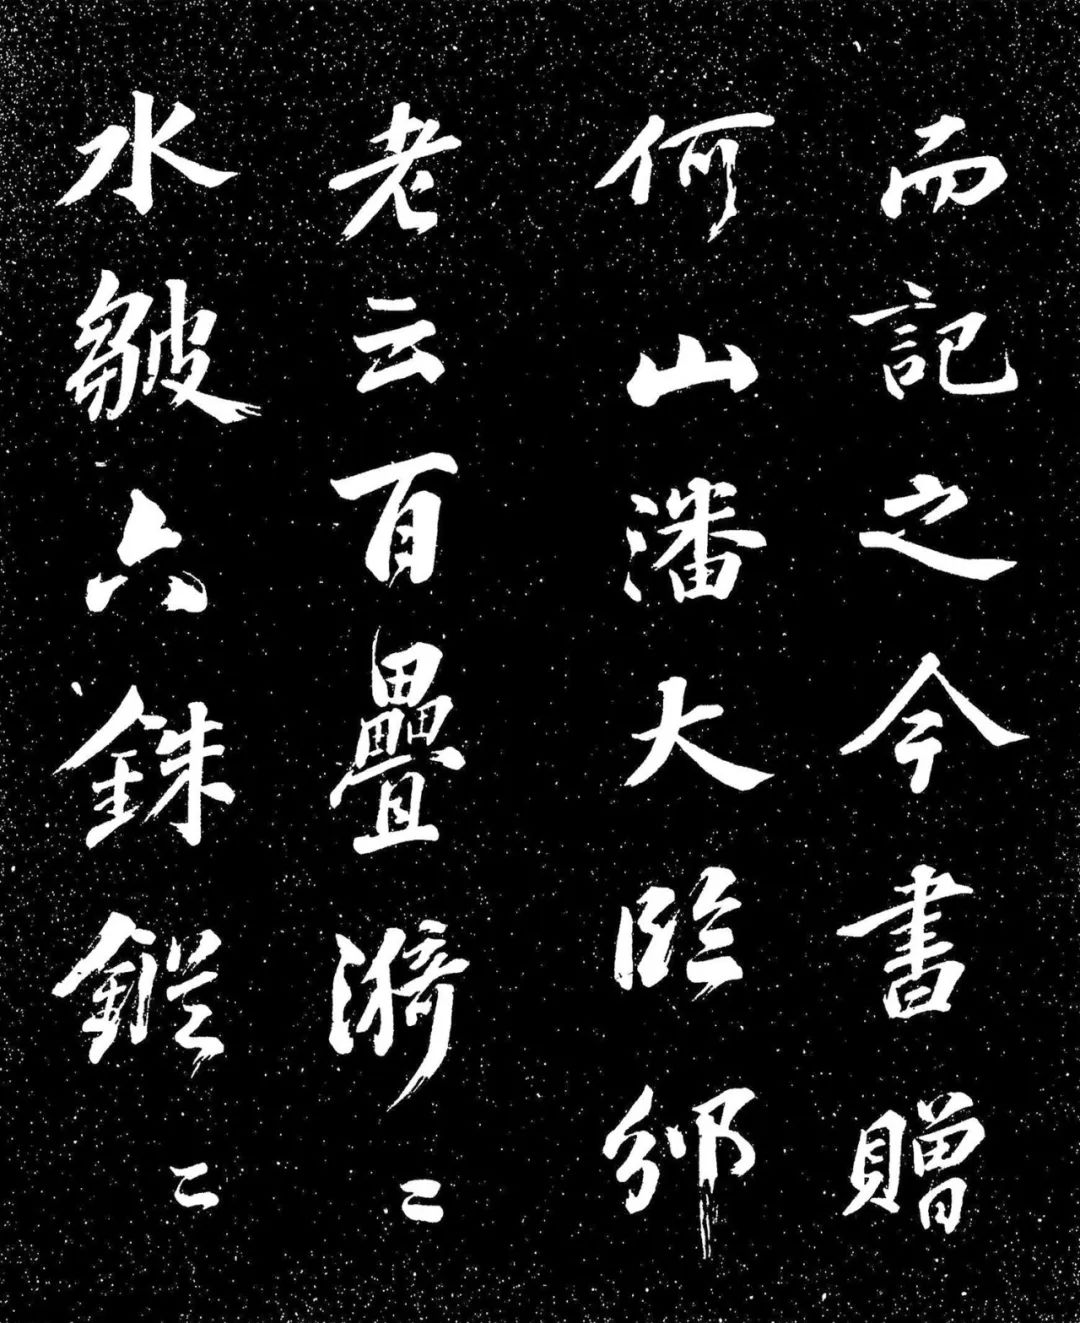 而記之今書贈
何山潘大臨邠
老云百疊漪〻
水皺六銖縰〻